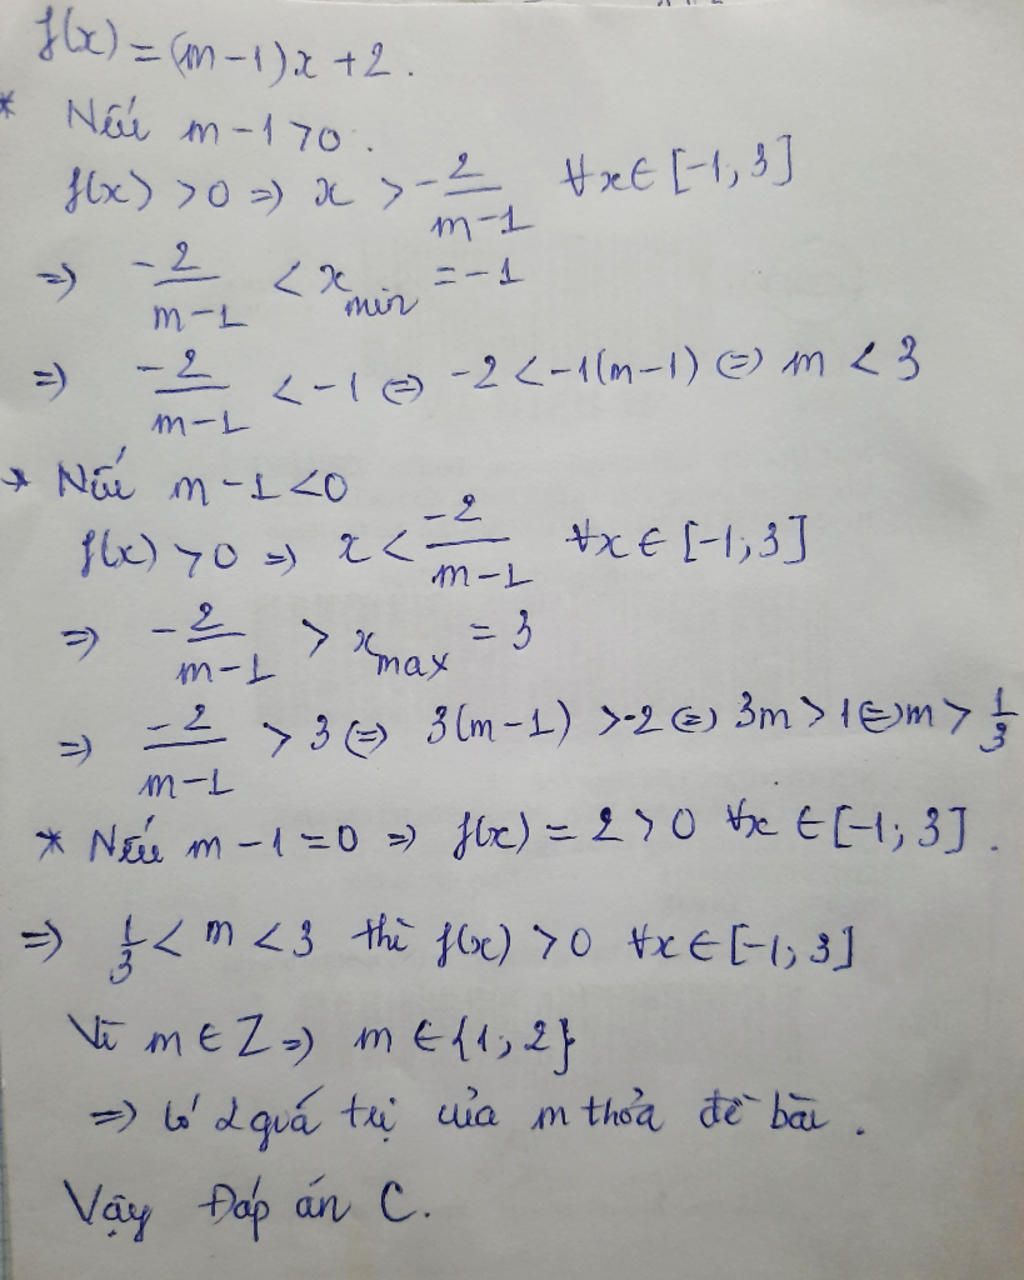 f(x) = (m-1)x + 2.
* Nếu m-1>0.
f(x) > 0 => x > -2/(m-1) ∀x∈ [-1; 3]
=> -2/(m-1) < x_min = -1
=> -2/(m-1) < -1 <=> -2 < -1(m-1) <=> m < 3
* Nếu m-1<0
f(x) > 0 => x < -2/(m-1) ∀x ∈ [-1; 3]
=> -2/(m-1) > x_max = 3
=> -2/(m-1) > 3 <=> 3(m-1) > -2 <=> 3m > 1 <=> m > 1/3
* Nếu m-1=0 => f(x) = 2 > 0 ∀x ∈ [-1; 3].
=> 1/3 < m < 3 thì f(x) > 0 ∀x ∈ [-1; 3]
Vì m ∈ Z => m ∈ {1; 2}
=> Có 2 giá trị của m thỏa đề bài.
Vậy Đáp án C.